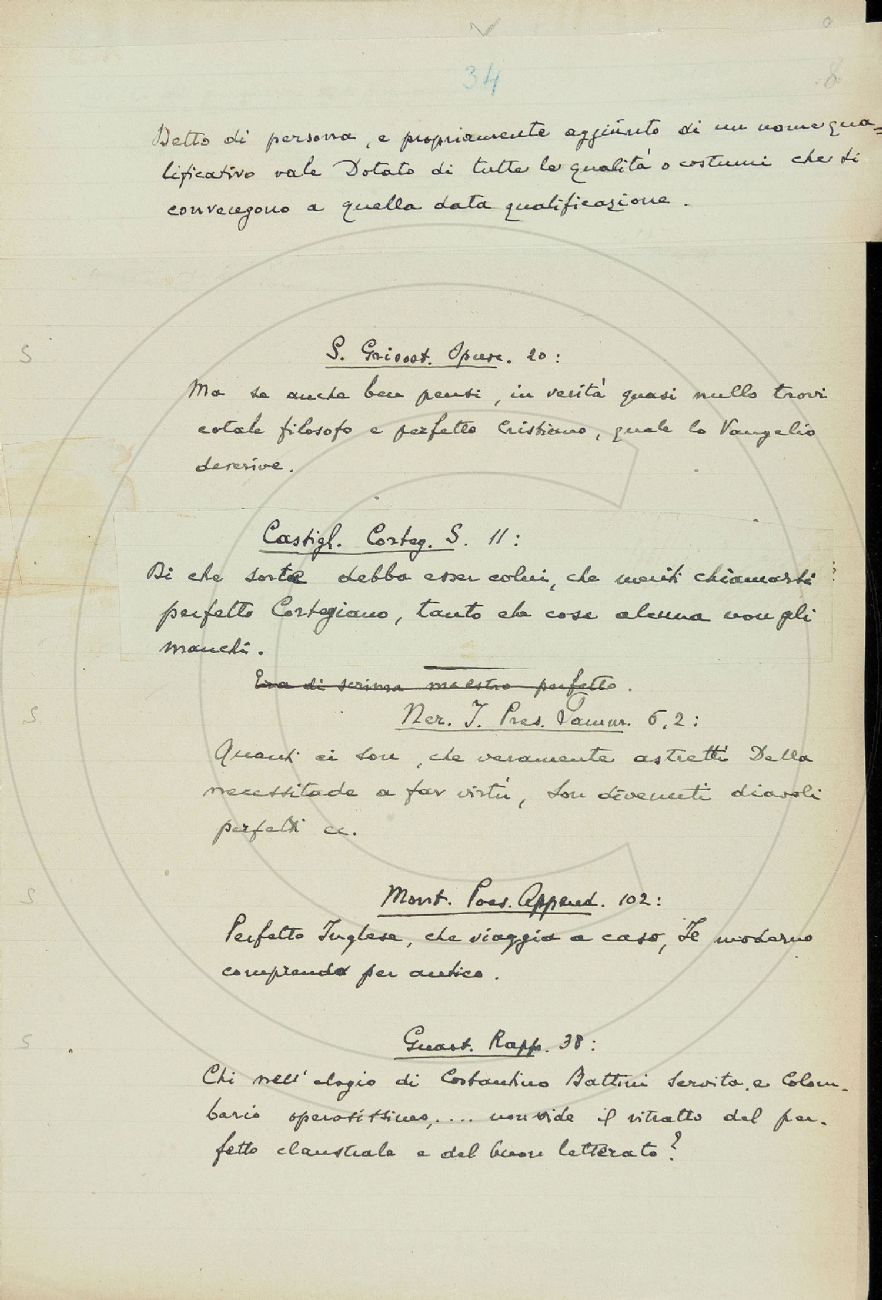 34
8
Detto di persona, e propriamente aggiunto di un nome qua=
lificativo vale Dotato di tutte le qualità o costumi che si
convengono a quella data qualificazione.
S. Grisost. Opusc. 20:
Ma se anche ben pensi, in verità quasi nullo trovi
cotale filosofo e perfetto Cristiano, quale lo Vangelio
descrive.
Castigl. Corteg. S. 11:
Di che sorte debba esser colui, che meriti chiamarsi
perfetto Cortegiano, tanto che cosa alcuna non gli
manchi.
Era di scrima maestro perfetto.
Ner. I. Pres. Samm. 6, 2:
Quanti ci son, che veramente astretti Della
necessitade a far virtù, Son divenuti diavoli
perfetti ec.
Mont. Poes. Append. 102:
Perfetto Inglese, che viaggia a caso, Il moderno
comprenda per antico.
Guast. Rapp. 38:
Chi nell'elogio di Costantino Battini Servita, e Colom-
bario operosissimo,.... non vide il ritratto del per-
fetto claustrale e del buon letterato?
S
S
S
S